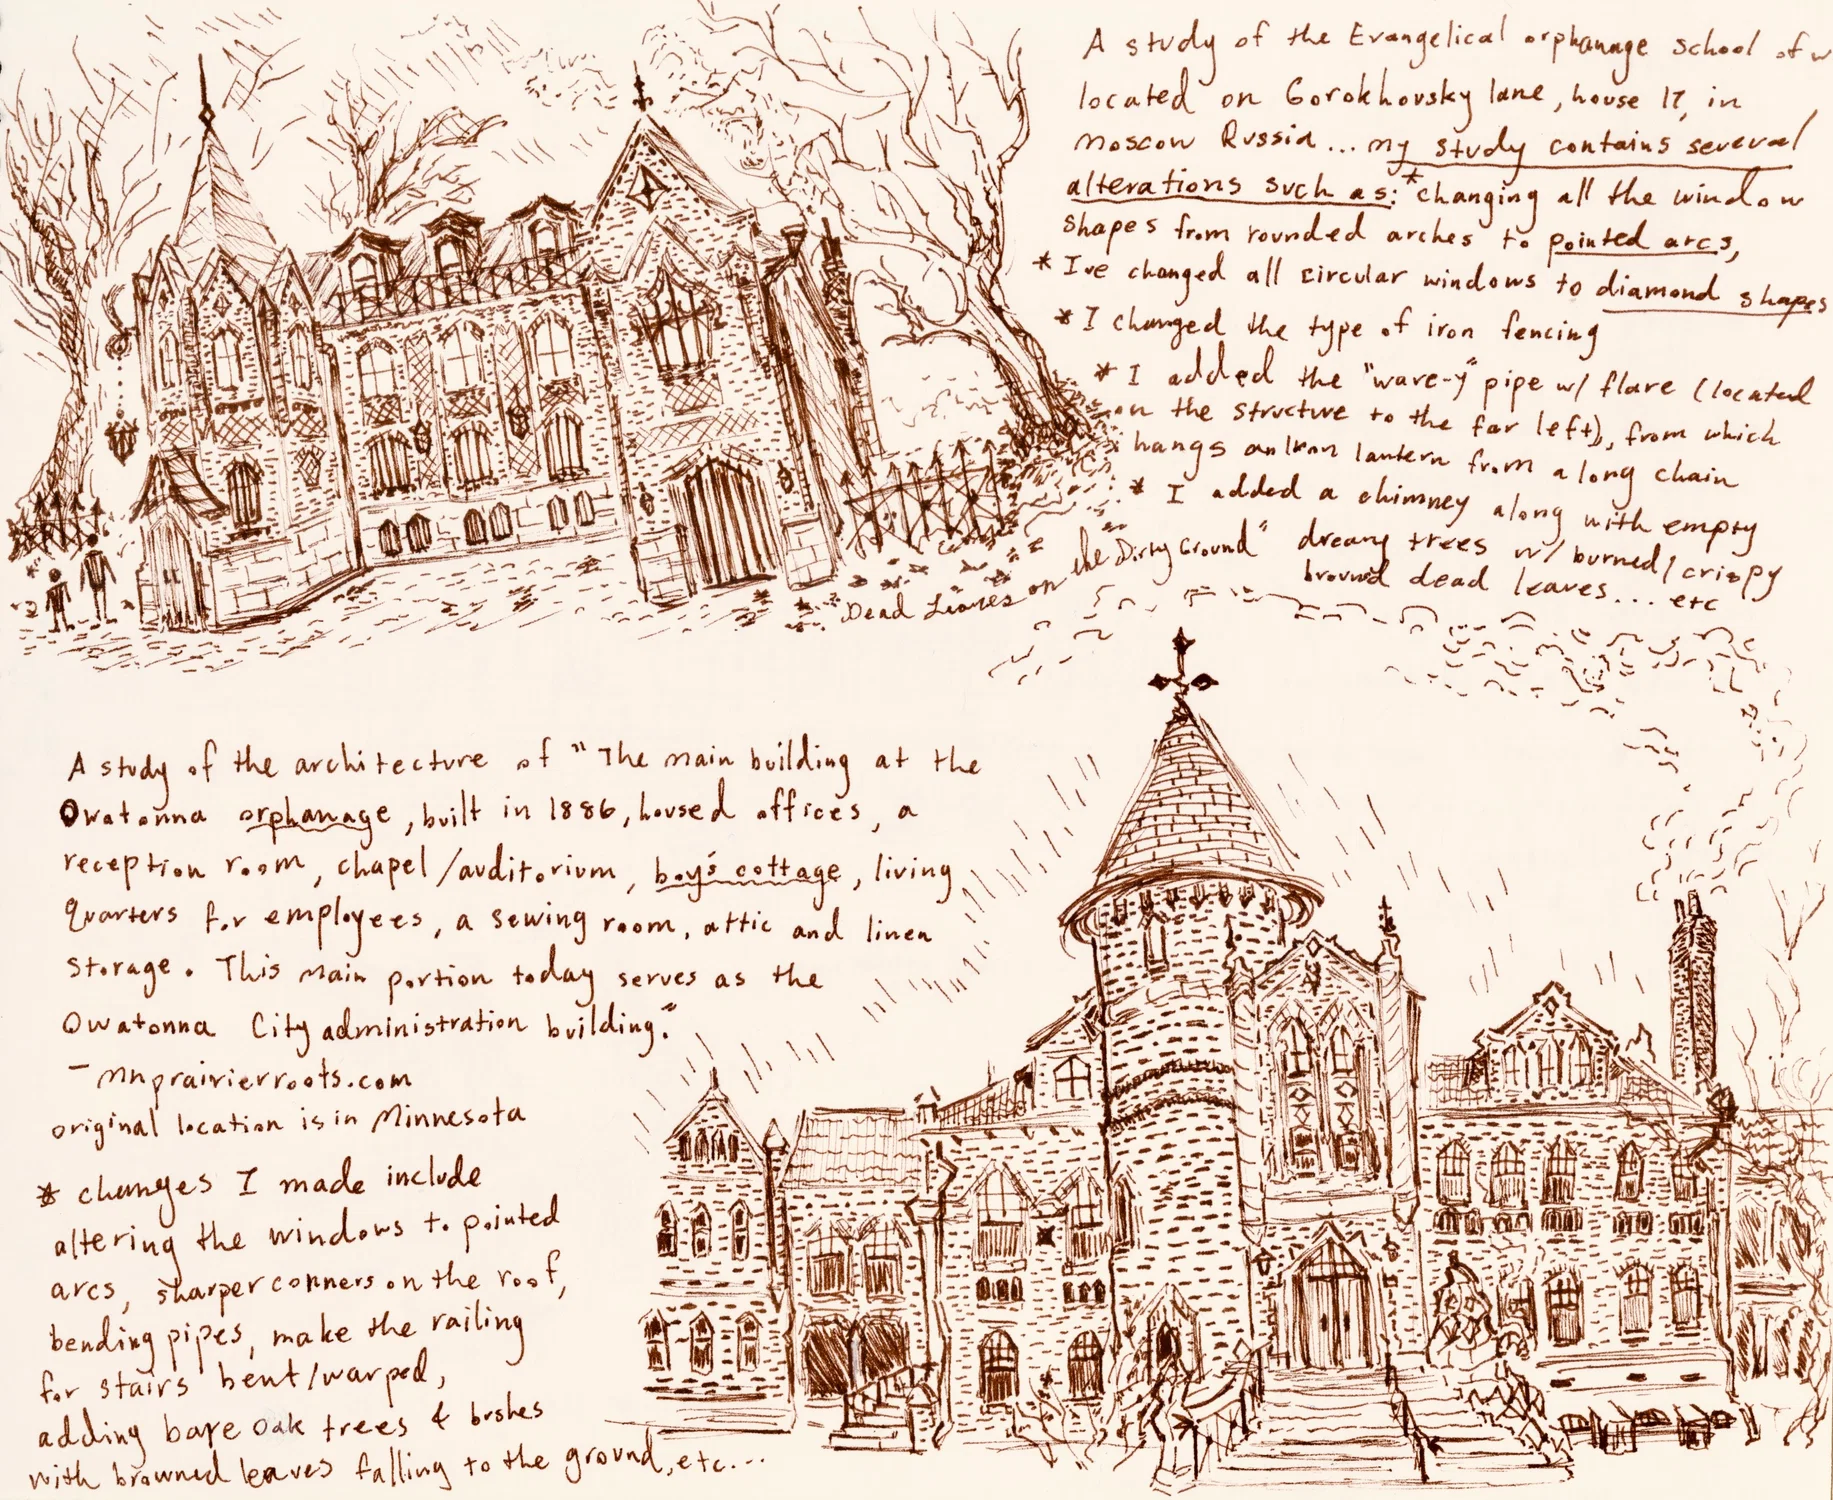 A study of the Evangelical orphanage school of
located on Gorokhovsky lane, house 17, in
Moscow Russia... my study contains several
alterations such as: *changing all the window
shapes from rounded arches to pointed arcs,
* I've changed all circular windows to diamond shapes
* I changed the type of iron fencing
* I added the "wave-y" pipe w/ flare (located
on the structure to the far left), from which
hangs an Iron lantern from a long chain
* I added a chimney along with empty
dreary trees w/ burned/crispy
browned dead leaves... etc
Dead Leaves on the Dirty Ground"
A study of the architecture of "The main building at the
Owatonna orphanage, built in 1886, housed offices, a
reception room, chapel/auditorium, boy's cottage, living
quarters for employees, a sewing room, attic and linen
storage. This main portion today serves as the
Owatonna City administration building."
- mnprairierroots.com
original location is in Minnesota
* changes I made include
altering the windows to pointed
arcs, sharper conners on the roof,
bending pipes, make the railing
for stairs bent/warped,
adding bare oak trees & bushes
with browned leaves falling to the ground, etc...